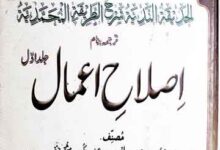 الحديقة الندية شرح الطريقة المحمدية
ترجمہ بنام
اِصلاحِ اعمال
جلد اوّل
مُصنِّف